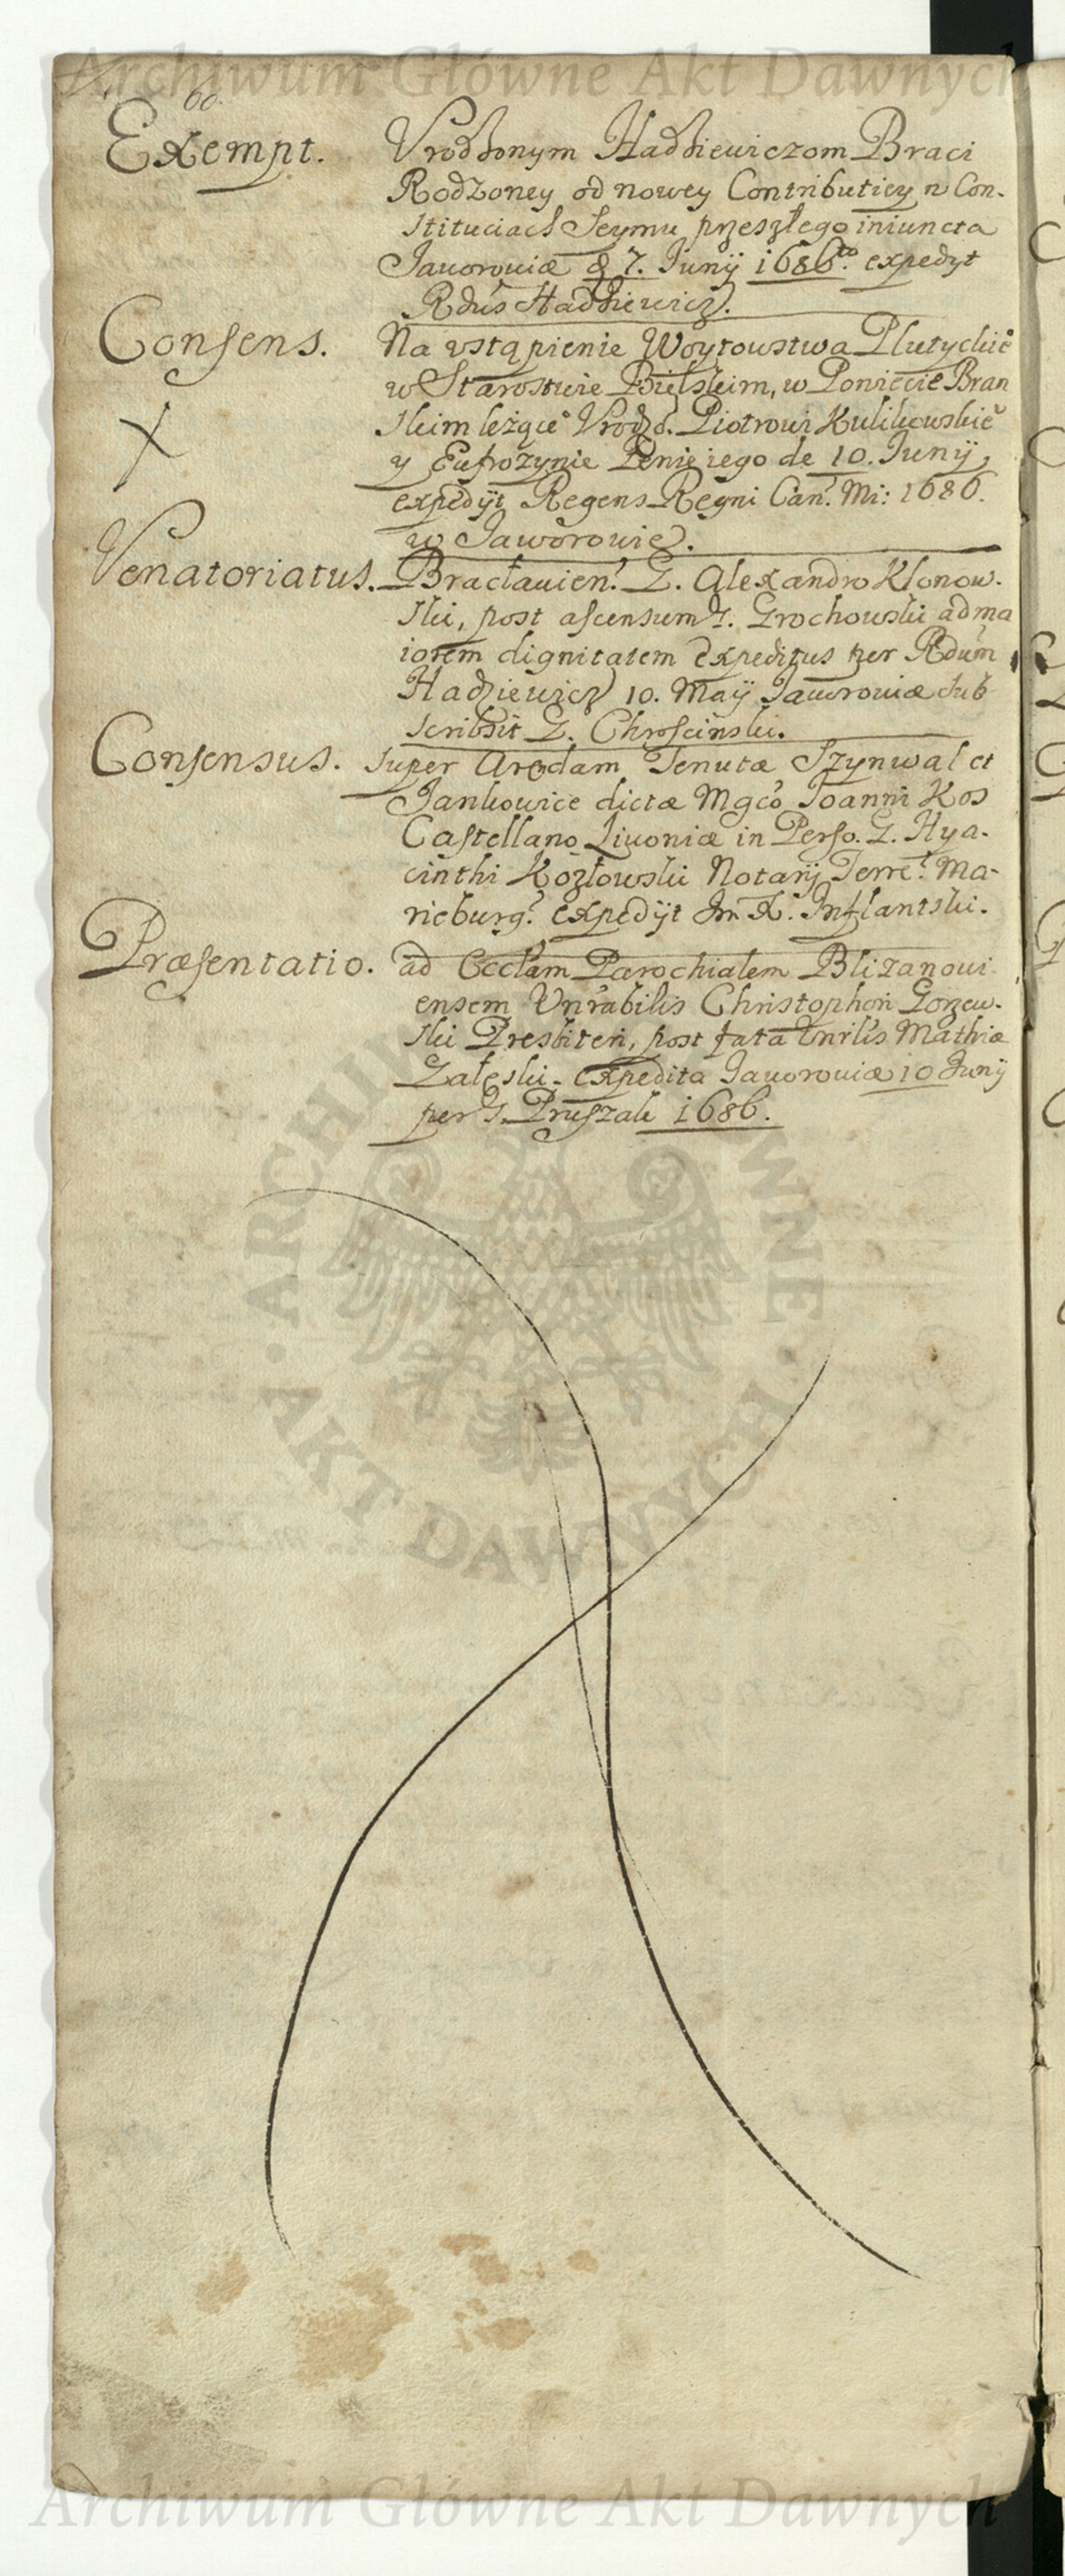 Archiwum Główne Akt Dawnych
60.
Exempt. Urodzonym Hadziewiczom Braci
Rodzoney od nowey Contributiey n Con-
stituciach Seymu przeszłego iniuncta
Javoroviæ d 7. Junij 1686to. expedyt
Rdus Hadziewicz.
Consens. Na vstąpienie Woytowstwa Plutyckiego
w Starostwie Bielskim, w Powiecie Bran
X skim leżące° Vrodzo. Piotrowi Kulikowskie
y Eufrozynie Żenie iego de 10. Junij,
expedijt Regens Regni Can. Mi: 1686.
w Jaworowie.
Venatoriatus. Bracłavien. G. Alexandro Klonow-
ski, post ascensum G. Grochowski ad ma
iorem dignitatem expeditus per Rdum
Hadziewicz 10. Maij Javoroviæ sub
scribsit G. Chroscinski.
Consensus. super Arędam Tenutæ Szynwal et
Jankowice dictæ Mgco Joanni Kos
Castellano Livoniæ in Perso. G. Hya-
cinthi Kozłowski Notarij Terre. Ma-
rieburg. expedijt Jm X. Inflantski.
Præsentatio. ad Eccłam Parochialem Blizanovi
ensem Vnrabilis Christophori Gorzew-
ski Presbiteri, post fata Vnrlis Mathiæ
Zaleski. expedita Javoroviæ 10 Junij
per G. Pruszak 1686.
ARCHIWUM GŁÓWNE · AKT DAWNYCH ·
Archiwum Główne Akt Dawnych